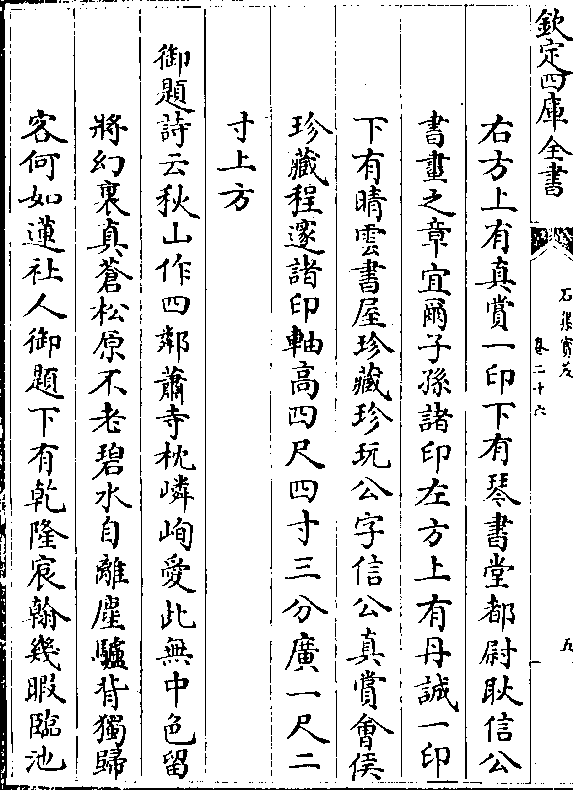 欽定四庫全書
石渠寳笈
卷二十六
五
右方上有真賞一印下有琴書堂都尉耿信公
書畫之章宜爾子孫諸印左方上有丹誠一印
下有晴雲書屋珍藏珍玩公字信公真賞會侯
珍藏程邃諸印軸高四尺四寸三分廣一尺二
寸上方
御題詩云秋山作四鄰蕭寺枕嶙峋愛此無中色留
將幻裏真蒼松原不老碧水自離塵驢背獨歸
客何如蓮社人御題下有乾隆宸翰幾暇臨池